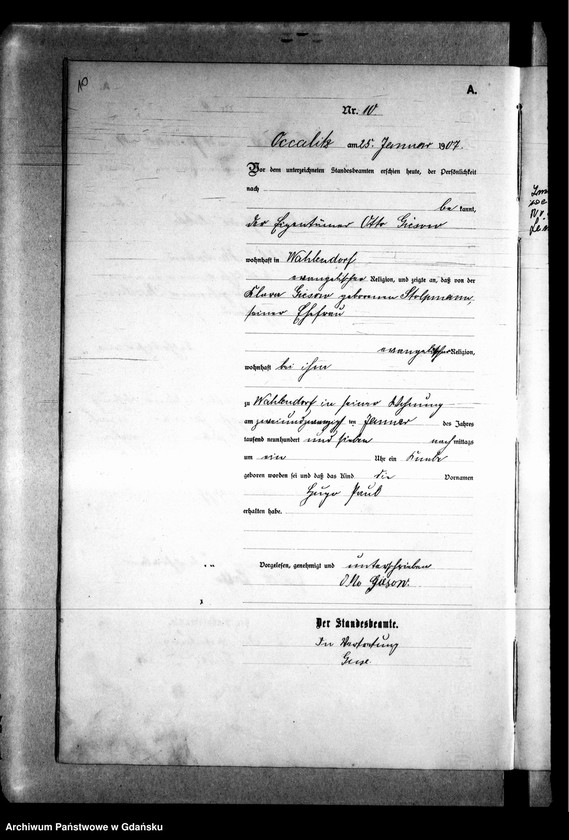 10
A.
Nr. 10
Occalitz am 25. Januar 1907.
Vor dem unterzeichneten Standesbeamten erschien heute, der Persönlichkeit
nach
be kannt,
der Eigentümer Otto Giesow
wohnhaft in Wahlendorf
evangelischer Religion, und zeigte an, daß von der
Klara Giesow geborenen Stolpmann,
seiner Ehefrau
evangelischer Religion,
wohnhaft bei ihm
zu Wahlendorf in seiner Wohnung
am zweiundzwanzigsten ten Januar des Jahres
tausend neunhundert und sieben nachmittags
um ein Uhr ein Knabe
geboren worden sei und daß das Kind die Vornamen
Hugo Paul
erhalten habe.
Vorgelesen, genehmigt und unterschrieben
Otto Giesow.
Der Standesbeamte.
In Vertretung
Archiwum Państwowe w Gdańsku